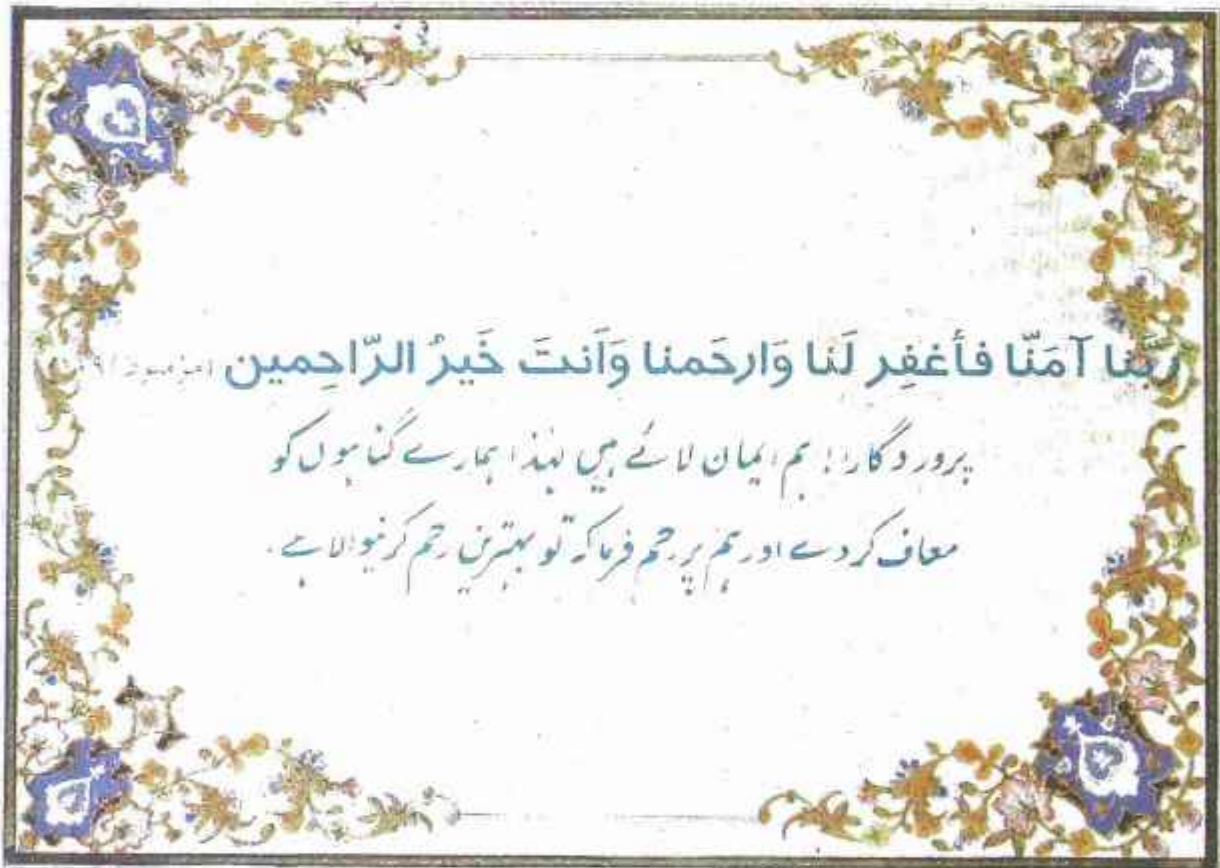 ربنا آمَنّا فأغفِر لَنا وَارحَمنا وَآنتَ خَيرُ الرّاحِمين
پروردگارا! ہم ایمان لائے ہیں لہٰذا ہمارے گناہوں کو
معاف کردے اور ہم پر رحم فرما کہ تو بہترین رحم کرنیوالا ہے۔